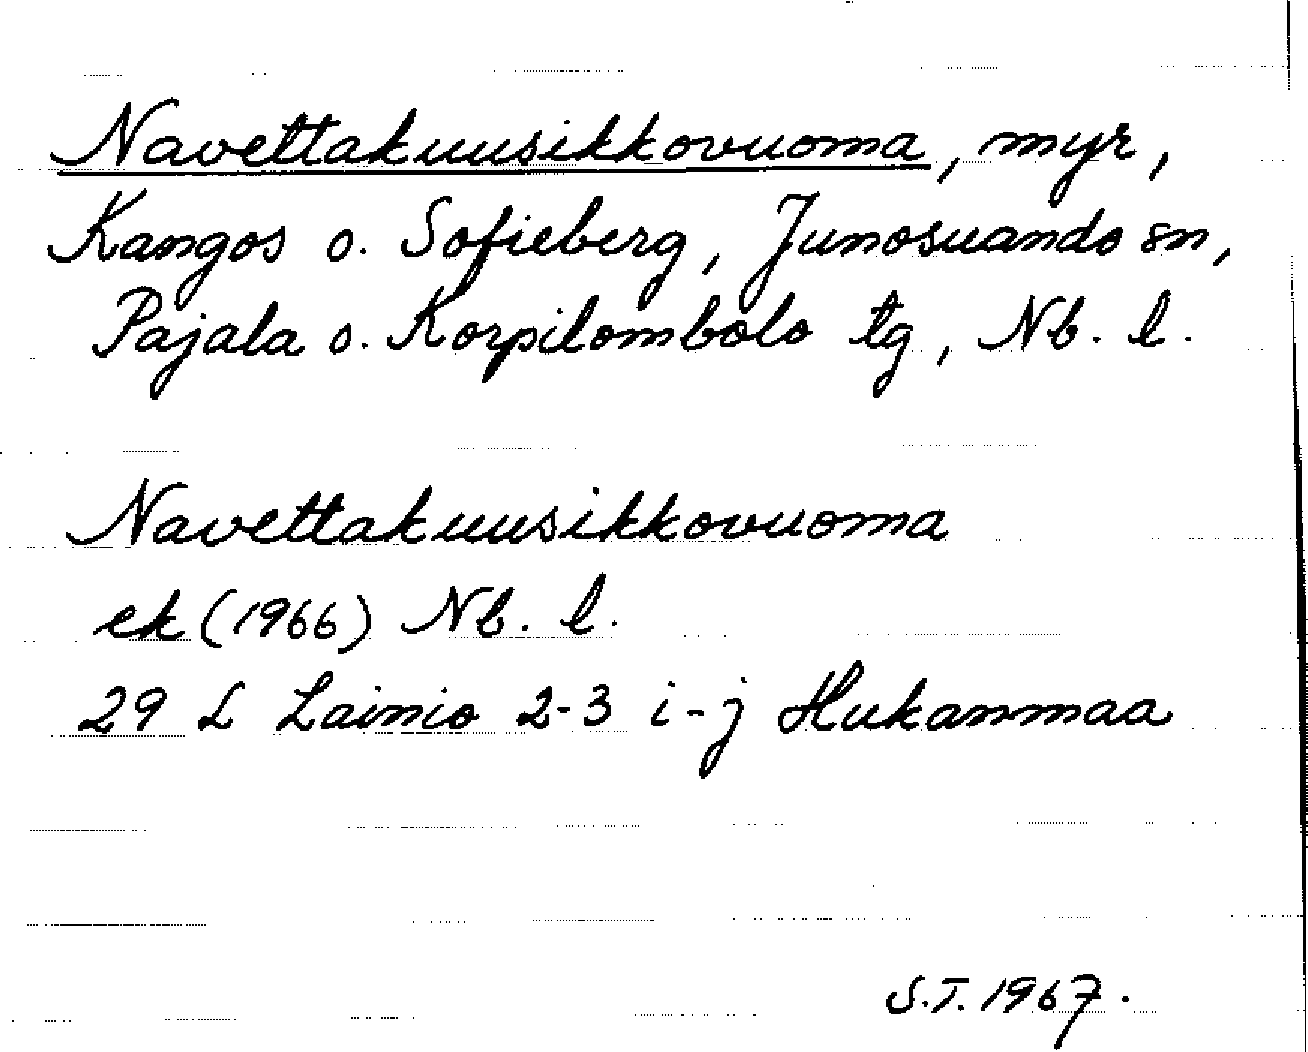 Navettakuusikkovuoma, myr,
Kangos o. Sofieberg, Junosuando sn,
Pajala o. Korpilombolo tg, Nb. l.
Navettakuusikkovuoma
ek (1966) Nb. l.
29 L Lainio 2-3 i-j Hukanmaa
S.T. 1967.